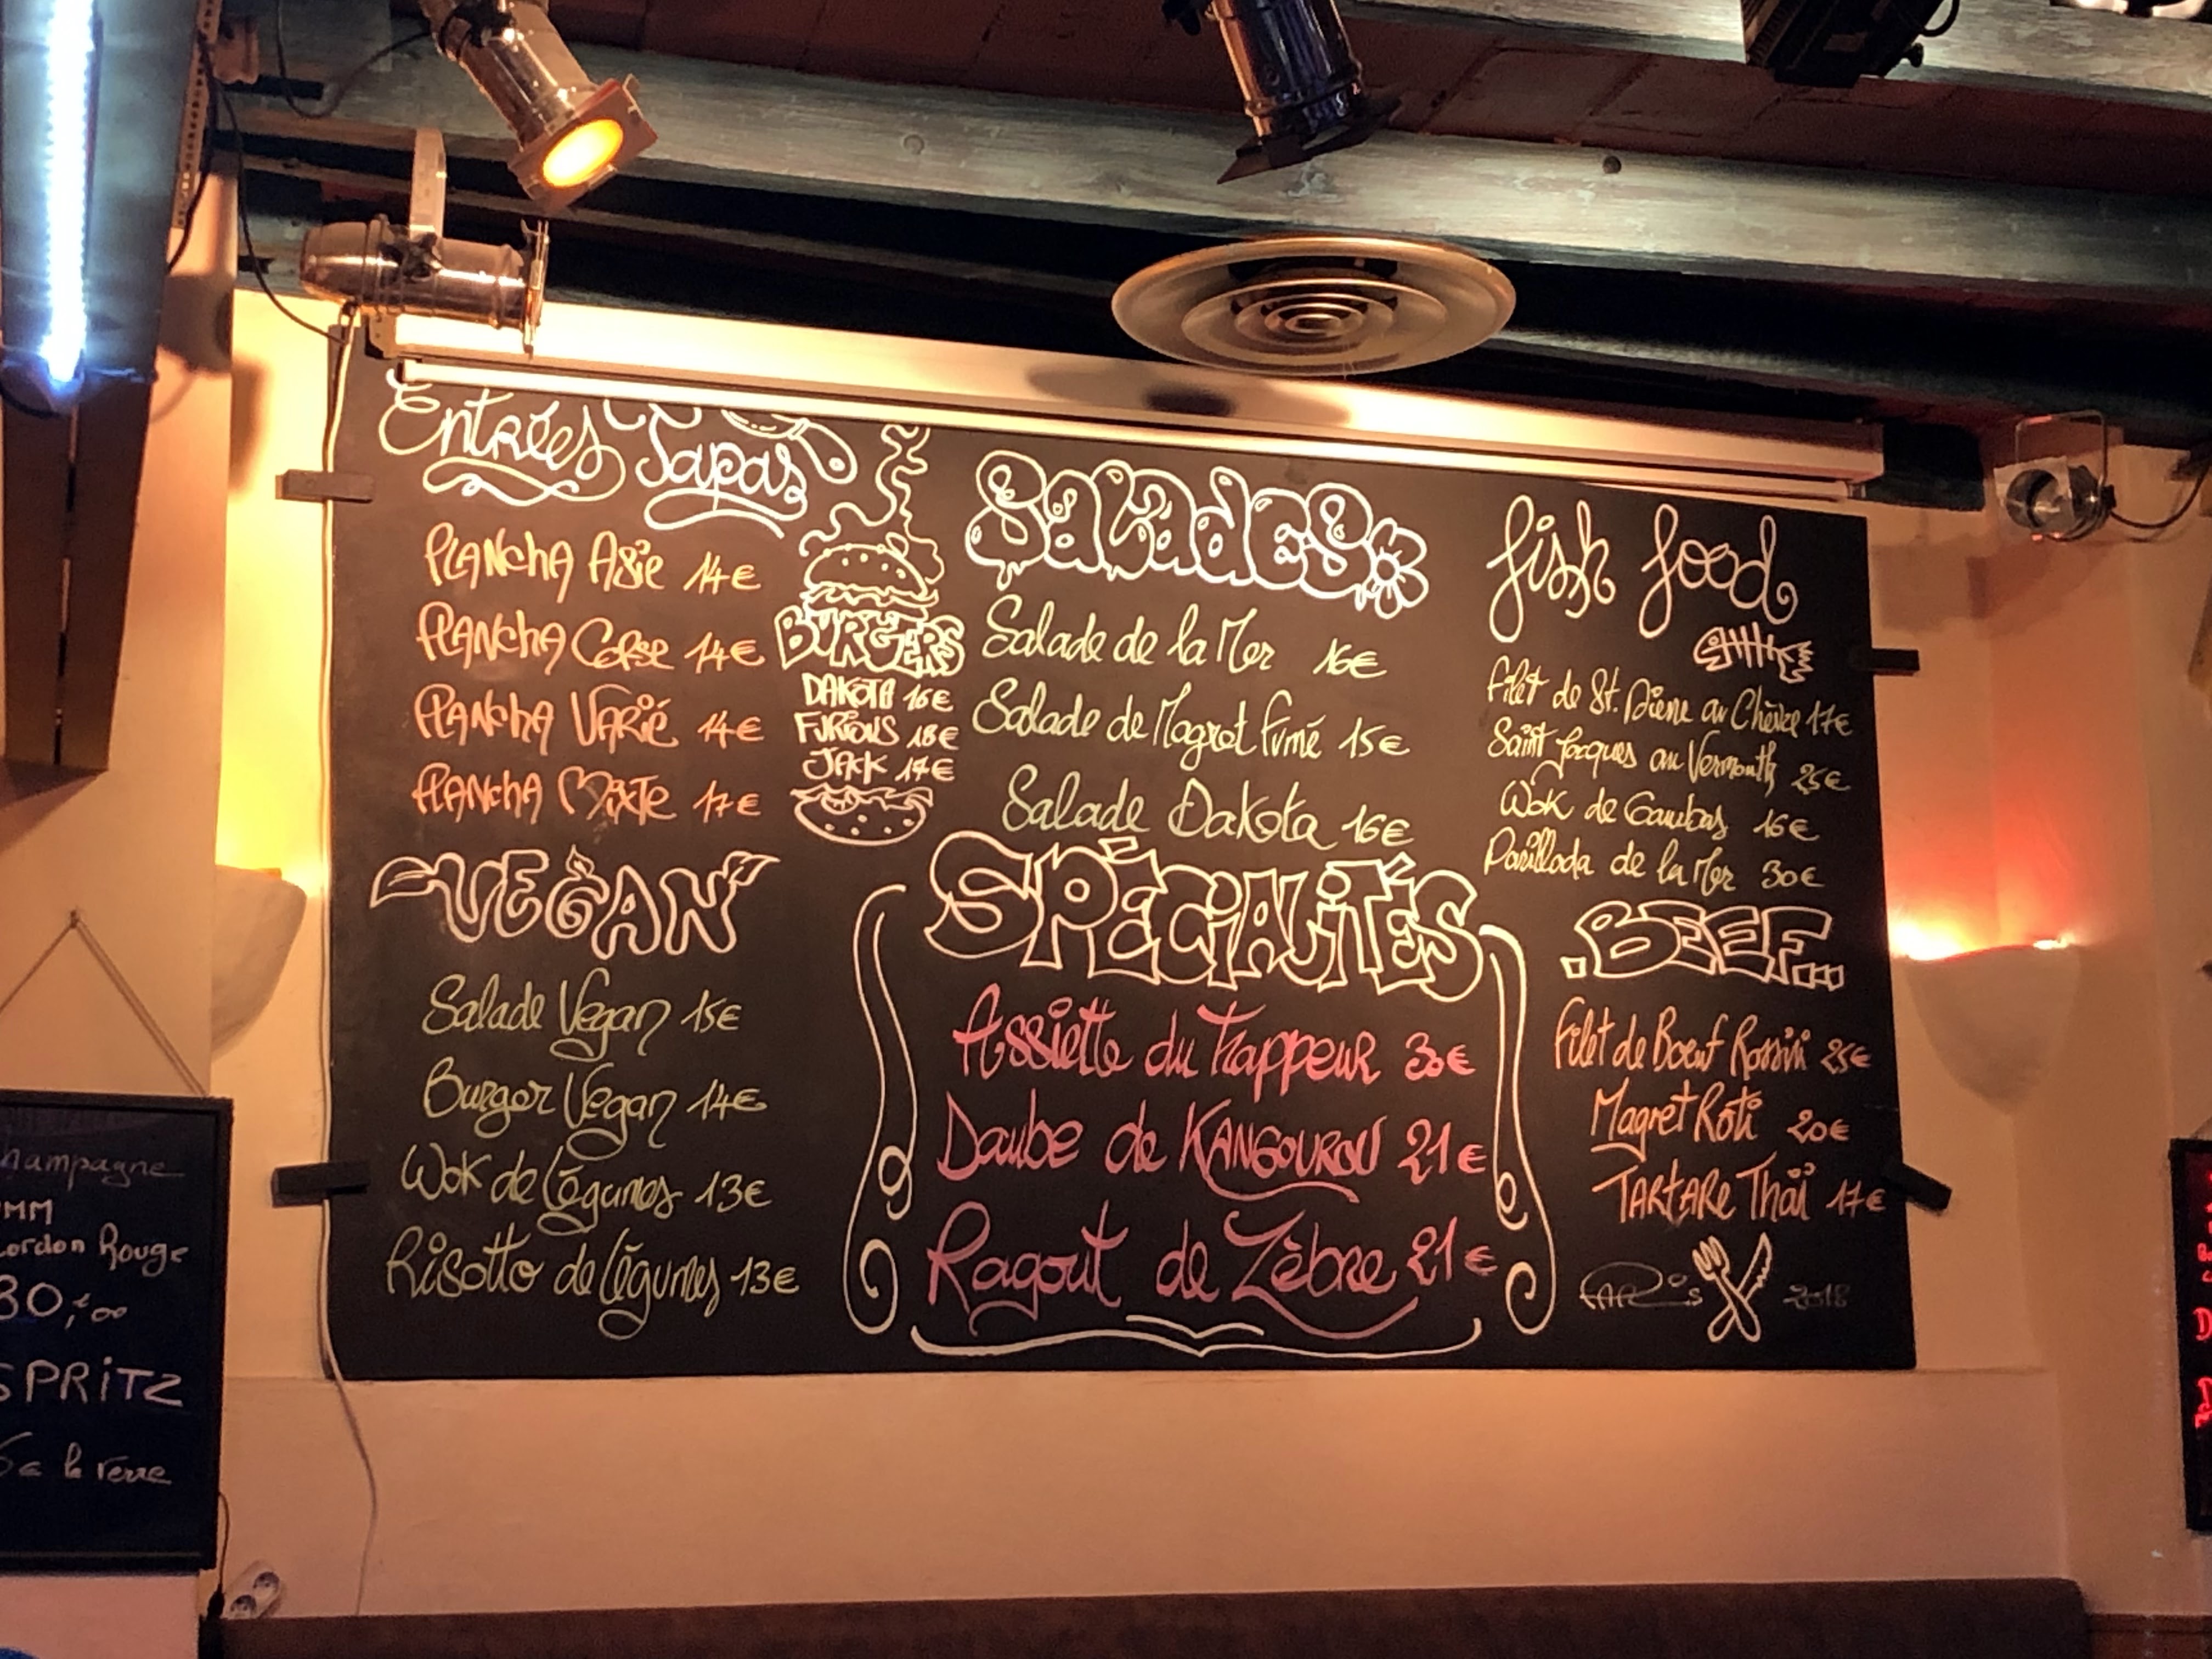 Entrées Tapas
PLANCHA Asie 14€
PLANCHA Corse 14€
PLANCHA VARIÉ 14€
PLANCHA MixTe 17€
BURGERS
DAKOTA 16€
FURIOUS 18€
JACK 17€
SALADES
Salade de la Mer 16€
Salade de Magret Fumé 15€
Salade Dakota 16€
fish food
Filet de St. Pierre au Chèvre 17€
Saint Jacques au Vermouth 25€
Wok de Gambas 16€
Parillada de la Mer 30€
VEGAN
Salade Vegan 15€
Burger Vegan 14€
Wok de Légumes 13€
Risotto de Légumes 13€
SPÉCIALITÉS
Assiette du Trappeur 30€
Daube de KANGOUROU 21€
Ragout de Zèbre 21€
.BEEF...
Filet de Boeuf Rossini 25€
Magret Rôti 20€
TARTARE Thaï 17€
2018
hampagne
MM
ordon Rouge
30,
SPRiTZ
€ le verre